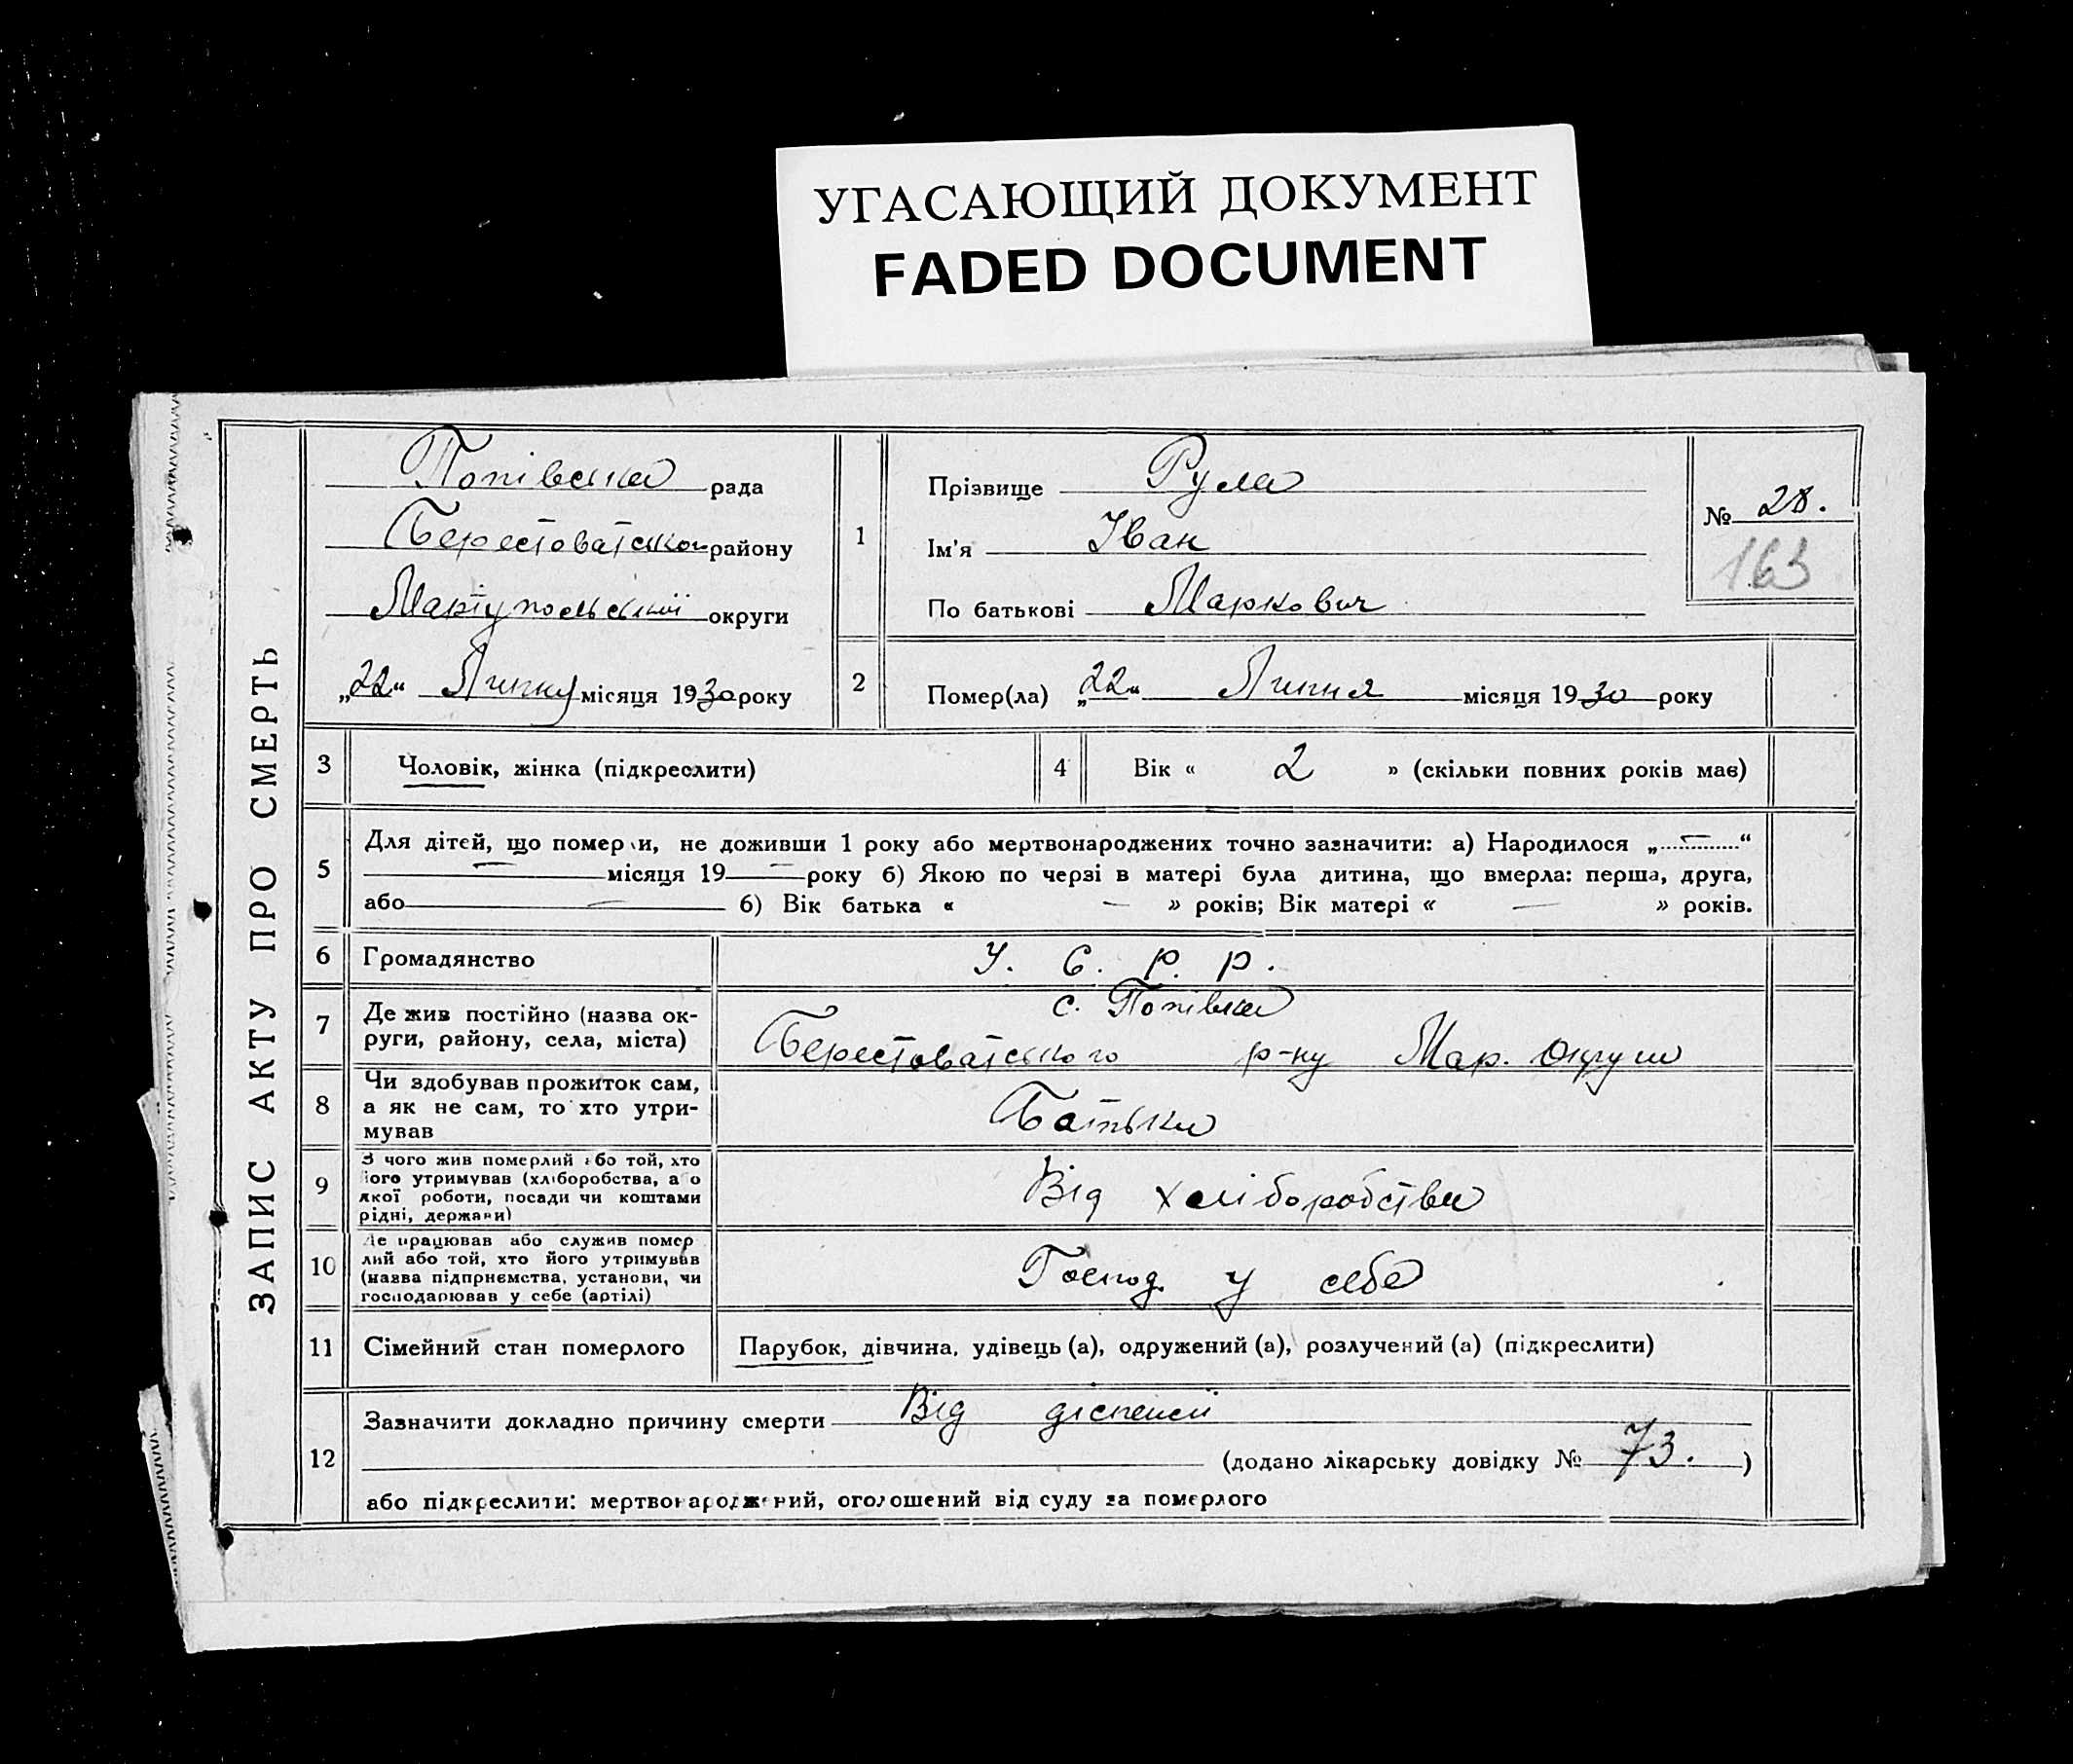 УГАСАЮЩИЙ ДОКУМЕНТ
FADED DOCUMENT
ЗАПИС АКТУ ПРО СМЕРТЬ
Попівська рада
Берестоватського району
Маріупольської округи
„22“ Липня місяця 1930 року
1
Прізвище Рула
Ім'я Іван
По батькові Маркович
№ 28.
163
2
Помер(ла) „22“ Липня місяця 1930 року
3 Чоловік, жінка (підкреслити)
4 Вік « 2 » (скільки повних років має)
5
Для дітей, що померли, не доживши 1 року або мертвонароджених точно зазначити: а) Народилося „—“
— місяця 19— року б) Якою по черзі в матері була дитина, що вмерла: перша, друга,
або — б) Вік батька « — » років; Вік матері « — » років.
6 Громадянство У. С. Р. Р.
7
Де жив постійно (назва ок-
руги, району, села, міста)
с. Попівка
Берестоватського р-ну Мар. округи
8
Чи здобував прожиток сам,
а як не сам, то хто утри-
мував
Батьки
9
З чого жив померлий або той, хто
його утримував (хліборобства, або
якої роботи, посади чи коштами
рідні, держави)
Від хліборобства
10
Де працював або служив помер
лий або той, хто його утримував
(назва підприємства, установи, чи
господарював у себе (артілі)
Господ. у себе
11 Сімейний стан померлого Парубок, дівчина, удівець (а), одружений (а), розлучений (а) (підкреслити)
12
Зазначити докладно причину смерти Від діспепсії
(додано лікарську довідку № 73. )
або підкреслити: мертвонароджений, оголошений від суду за померлого